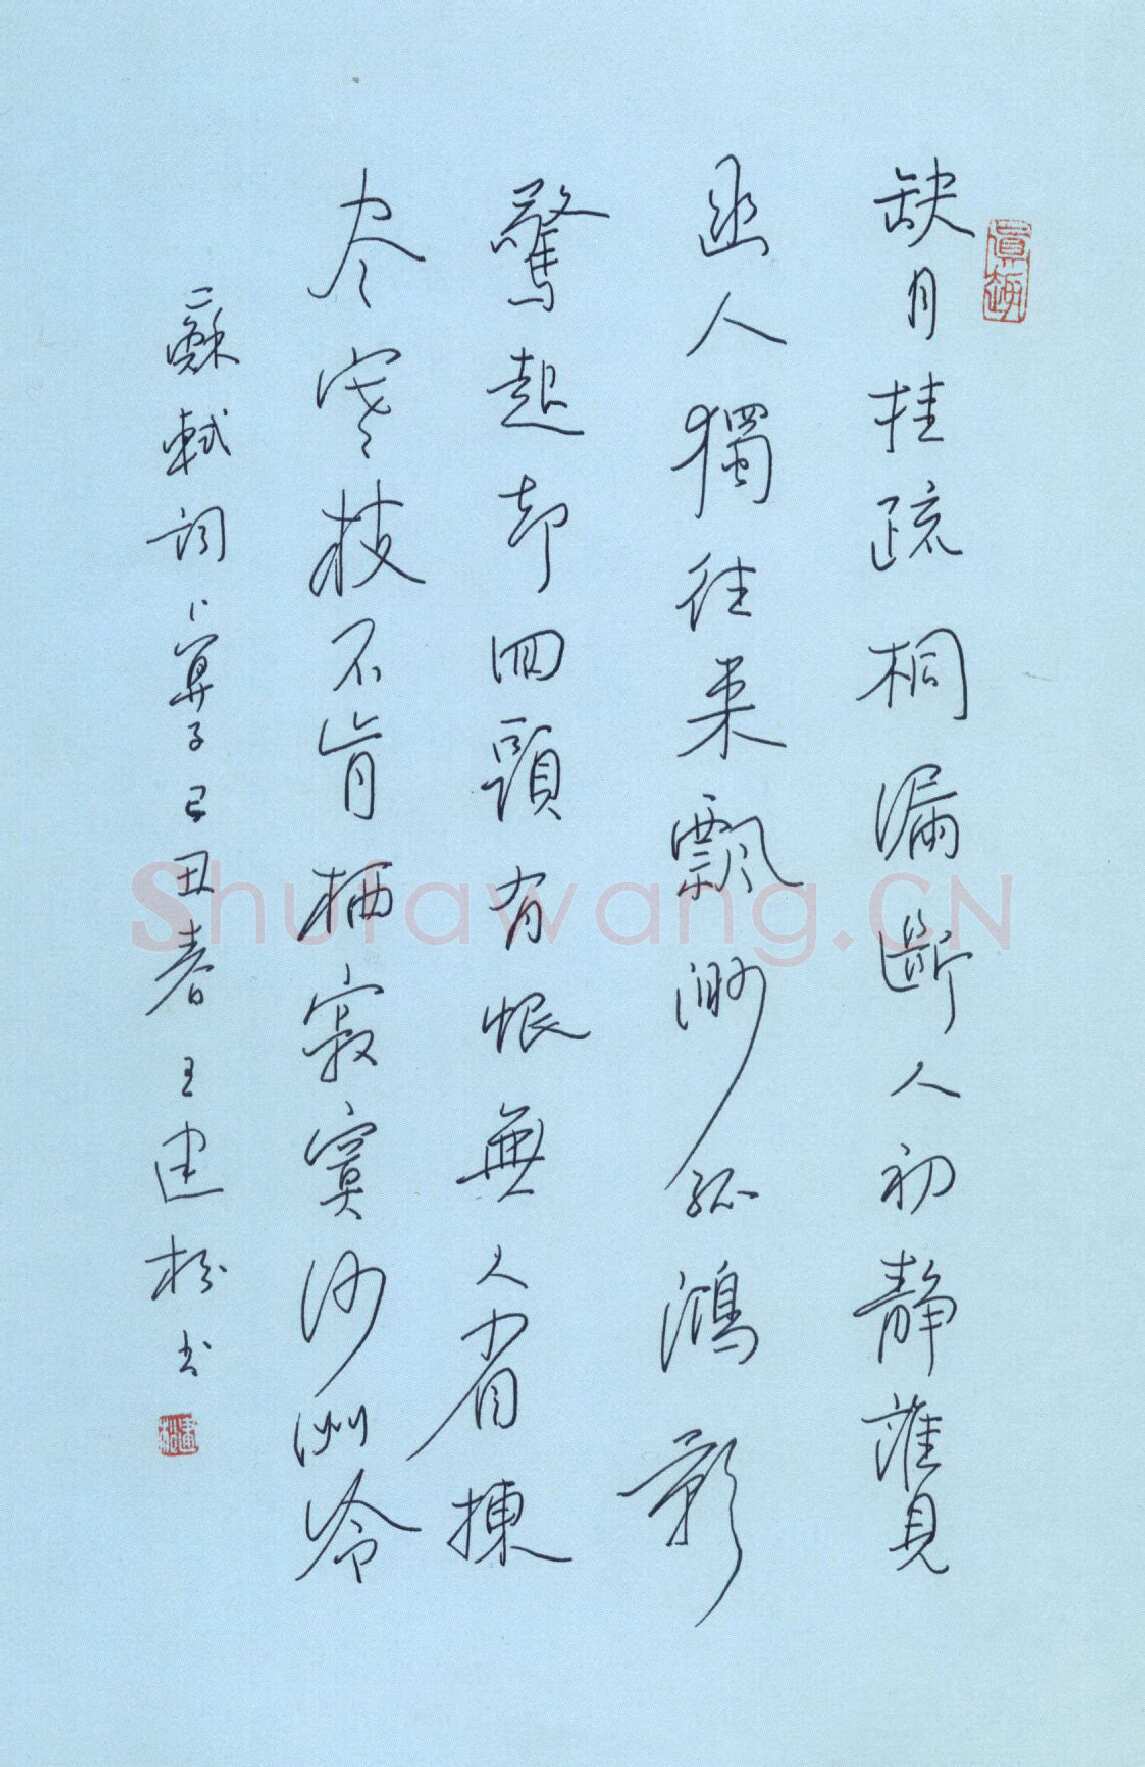 缺月挂疏桐漏断人初静谁見
幽人獨往来飄渺孤鴻影
驚起却回頭有恨無人省揀
尽寒枝不肯栖寂寞沙洲冷
蘇軾词卜算子己丑春王建松书
建松
Shufawang.CN